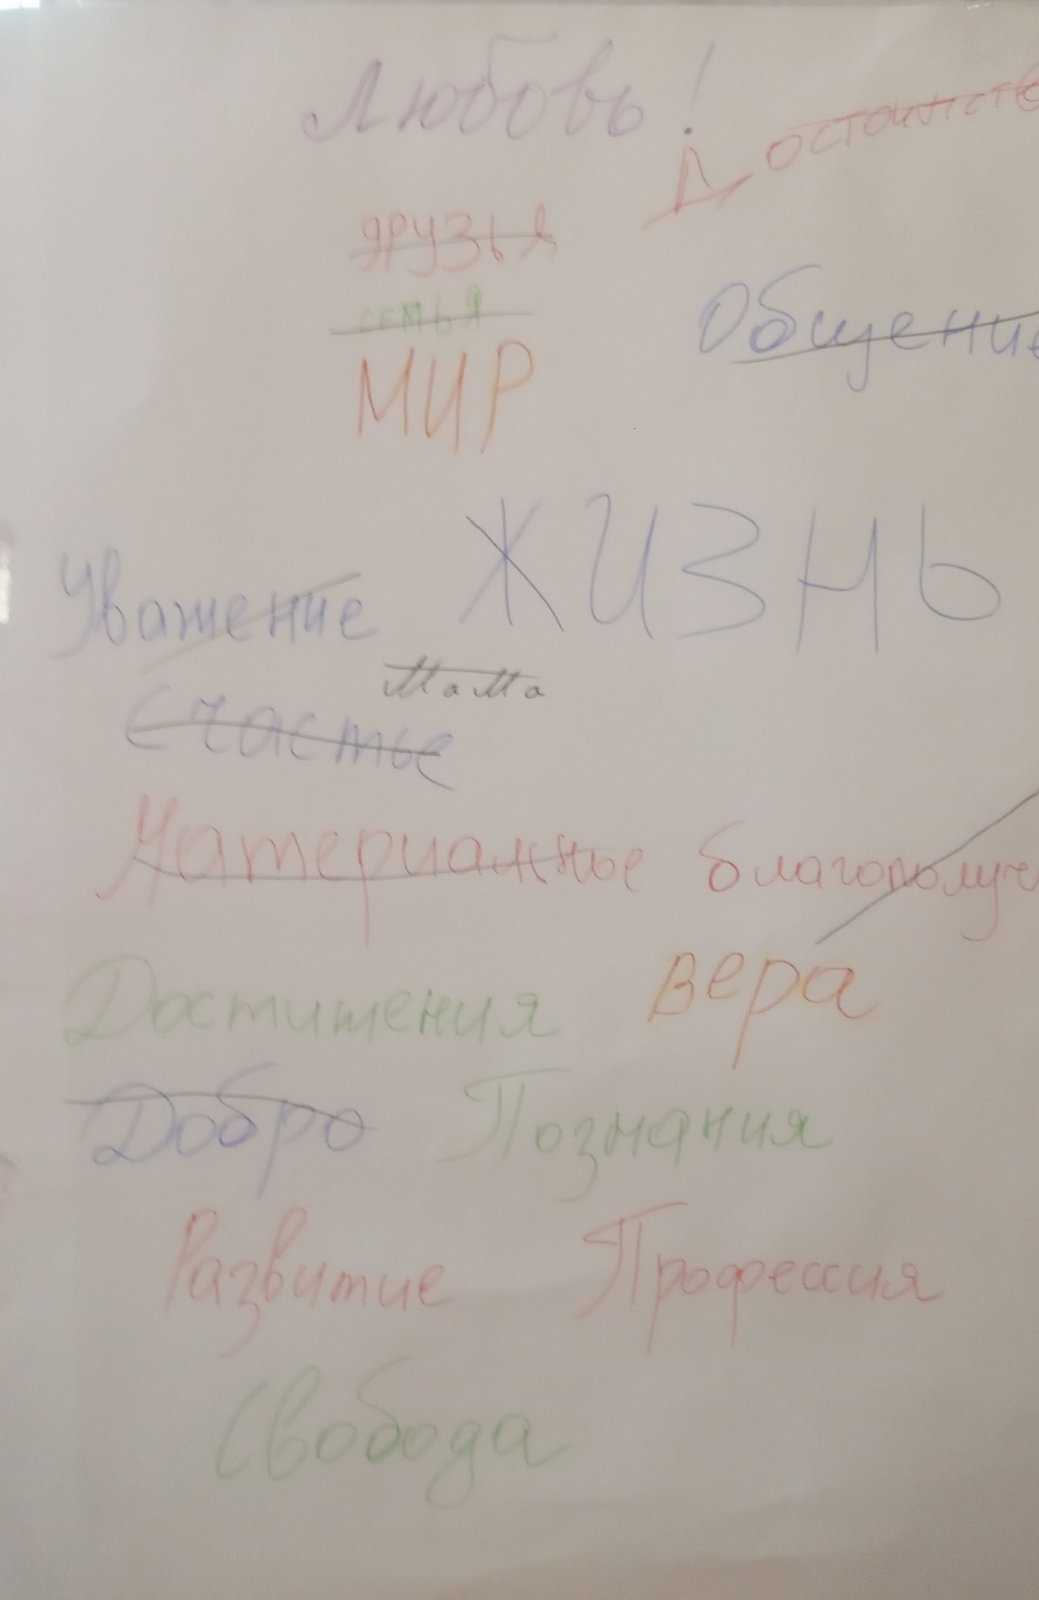 Любовь!
Достоинств
друзья
семья
Общение
МИР
ЖИЗНЬ
Уважение
Мама
Счастье
Материальное благополуч
Достижения вера
Добро Познания
Развитие Профессия
Свобода